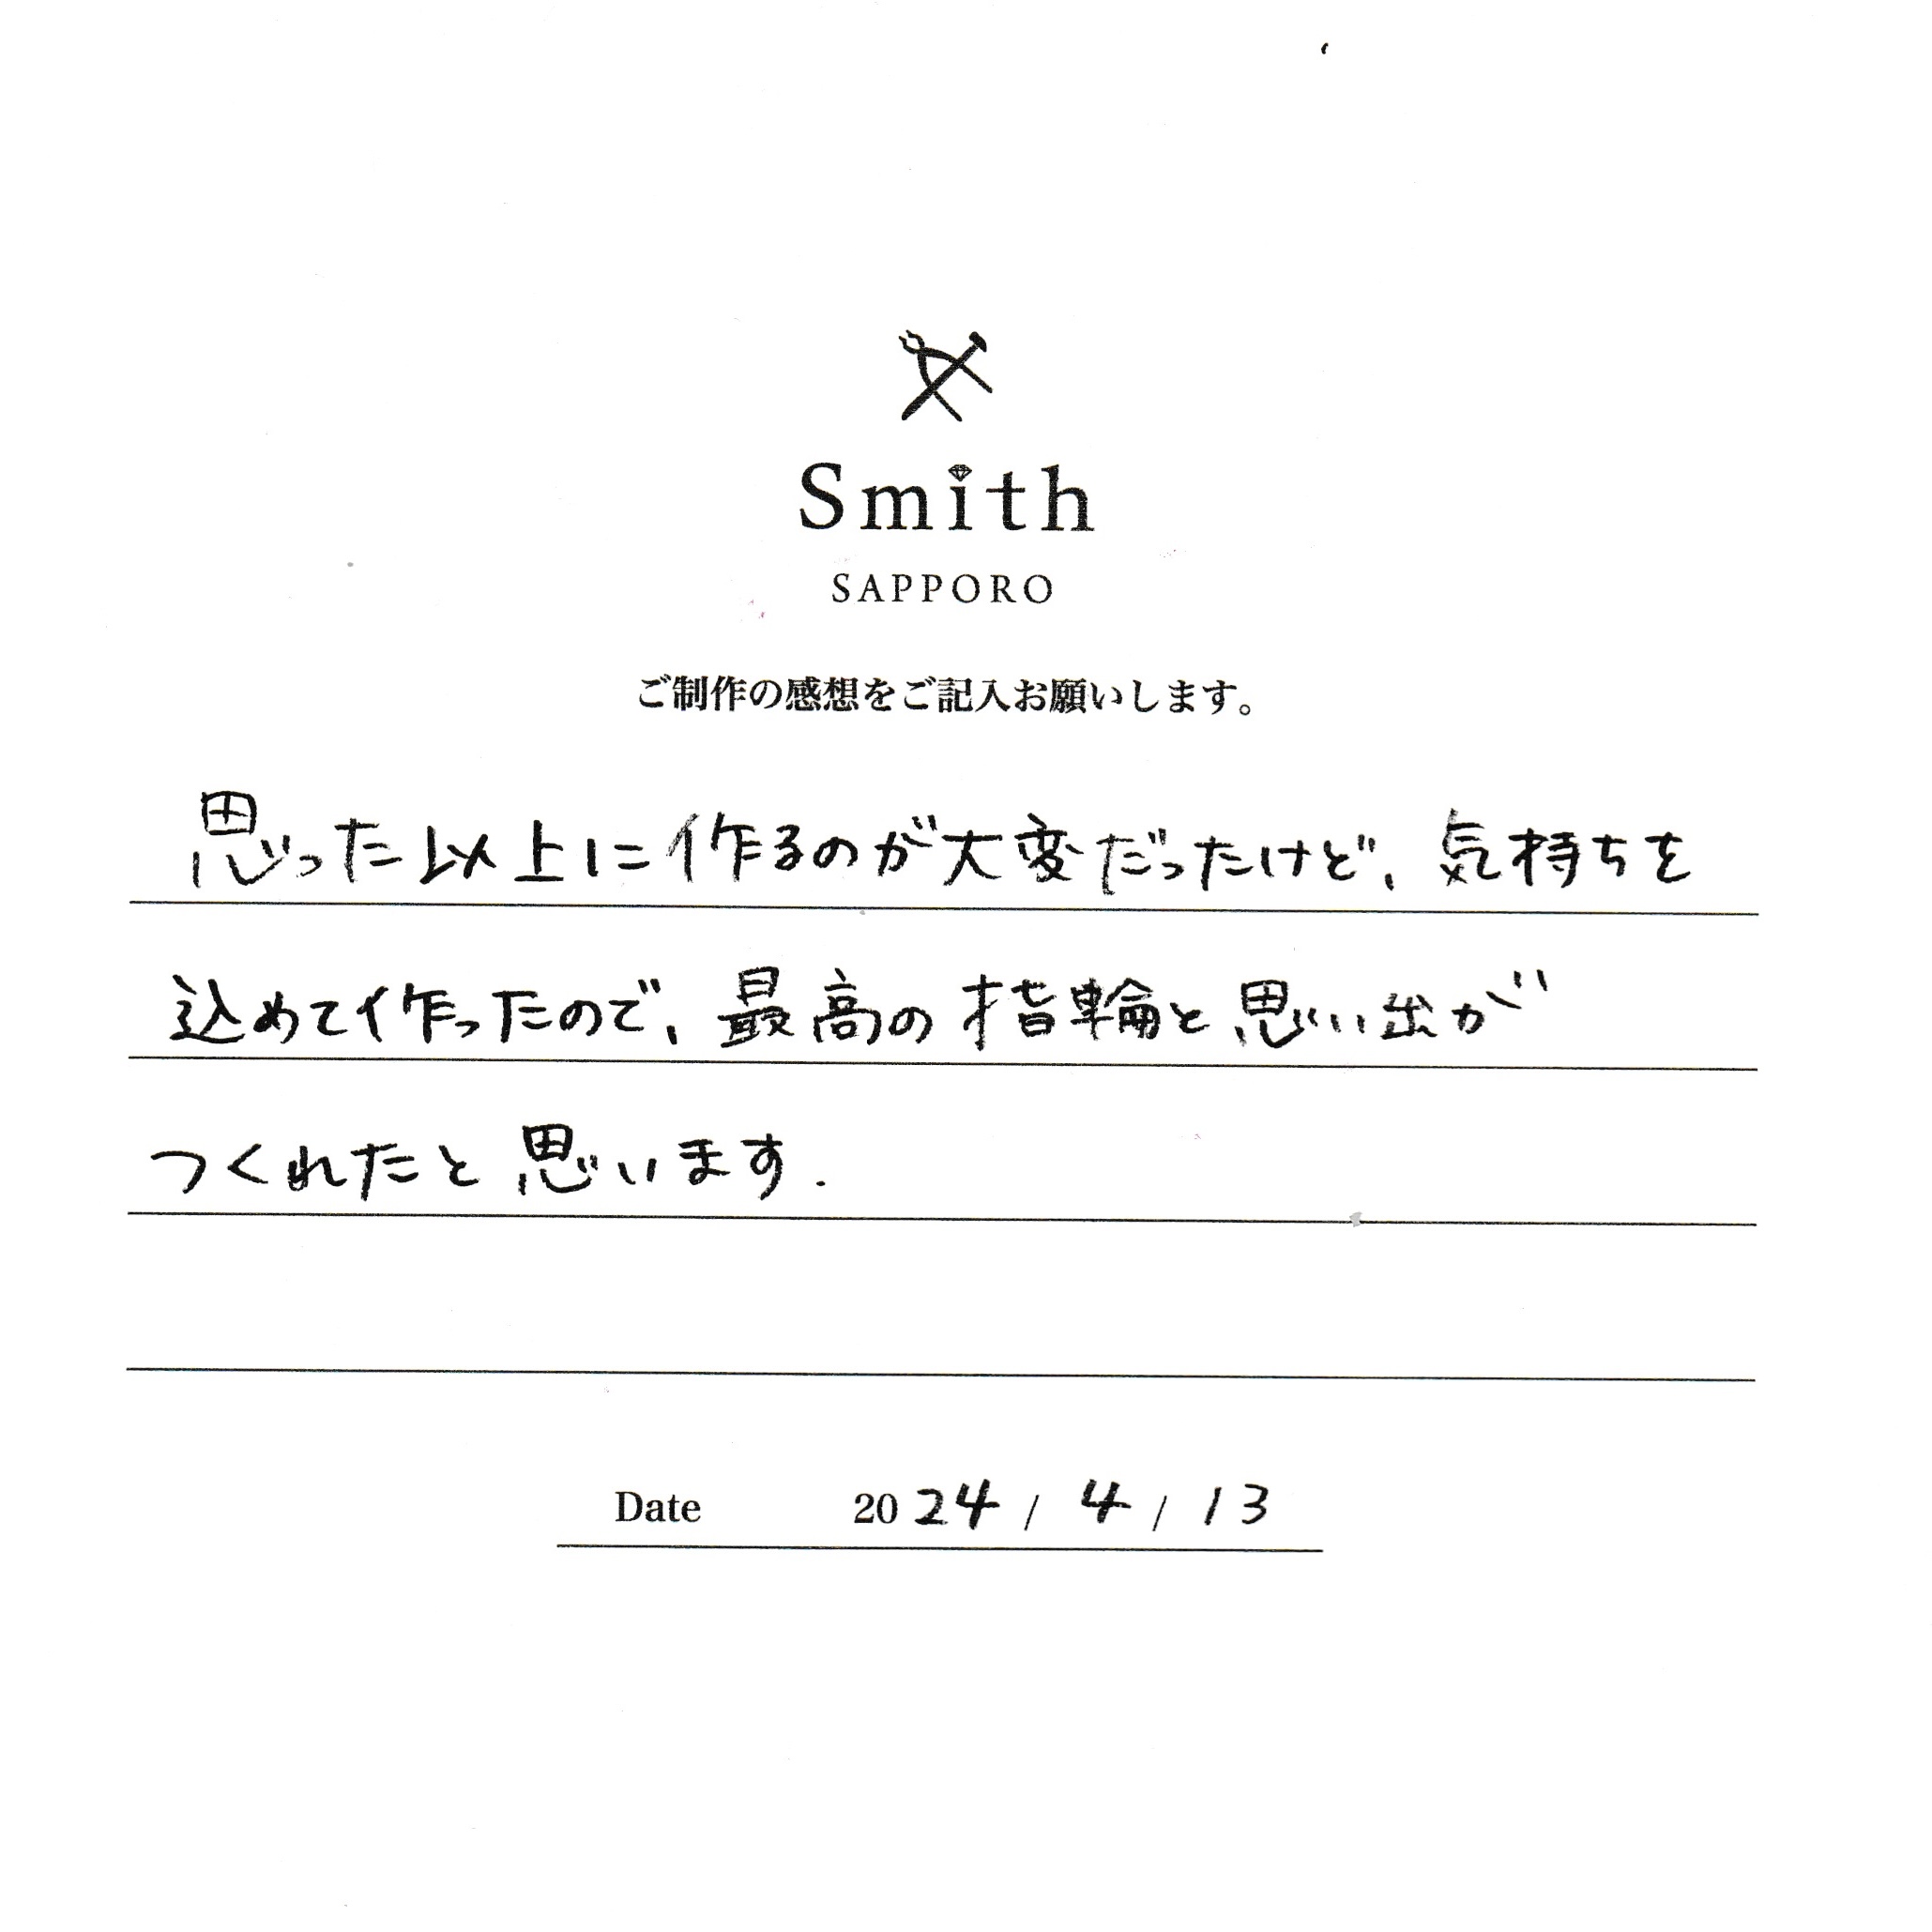 Smith
SAPPORO
ご制作の感想をご記入お願いします。
思った以上に作るのが大変だったけど、気持ちを
込めて作ったので、最高の指輪と思い出が
つくれたと思います.
Date 2024 / 4 / 13